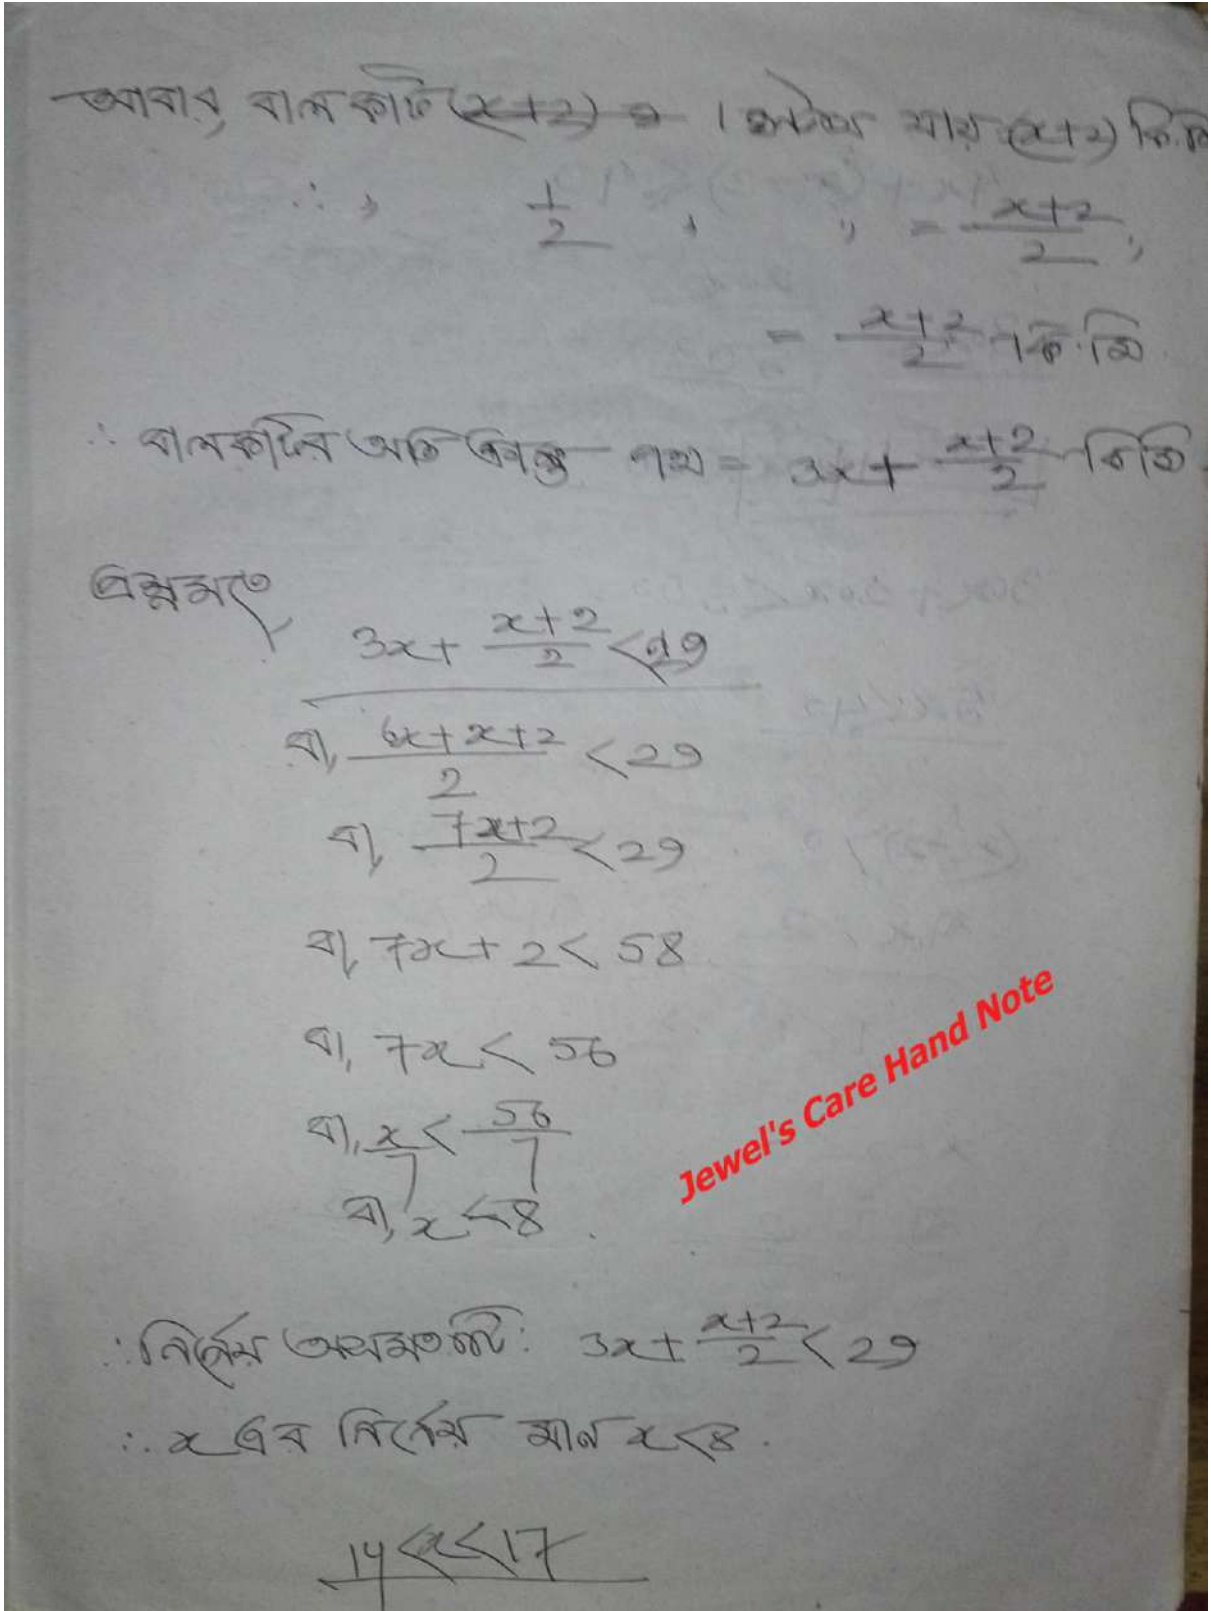 আবার, বালকটি (x+2) 2 1 ঘন্টায় যায় (x+2) কি.মি
∴ " 1/2 " " = (x+2)/2 "
= (x+2)/2 কি.মি
∴ বালকটির অতিক্রান্ত পথ = 3x + (x+2)/2 কিমি
প্রশ্নমতে,
3x + (x+2)/2 < 29
বা, (6x+x+2)/2 < 29
বা, (7x+2)/2 < 29
বা, 7x + 2 < 58
বা, 7x < 56
বা, x/7 < 56/7
বা, x < 8
Jewel's Care Hand Note
∴ নির্ণেয় অসমতাটি: 3x + (x+2)/2 < 29
∴ x এর নির্ণেয় মান x < 8.
14 < x < 17